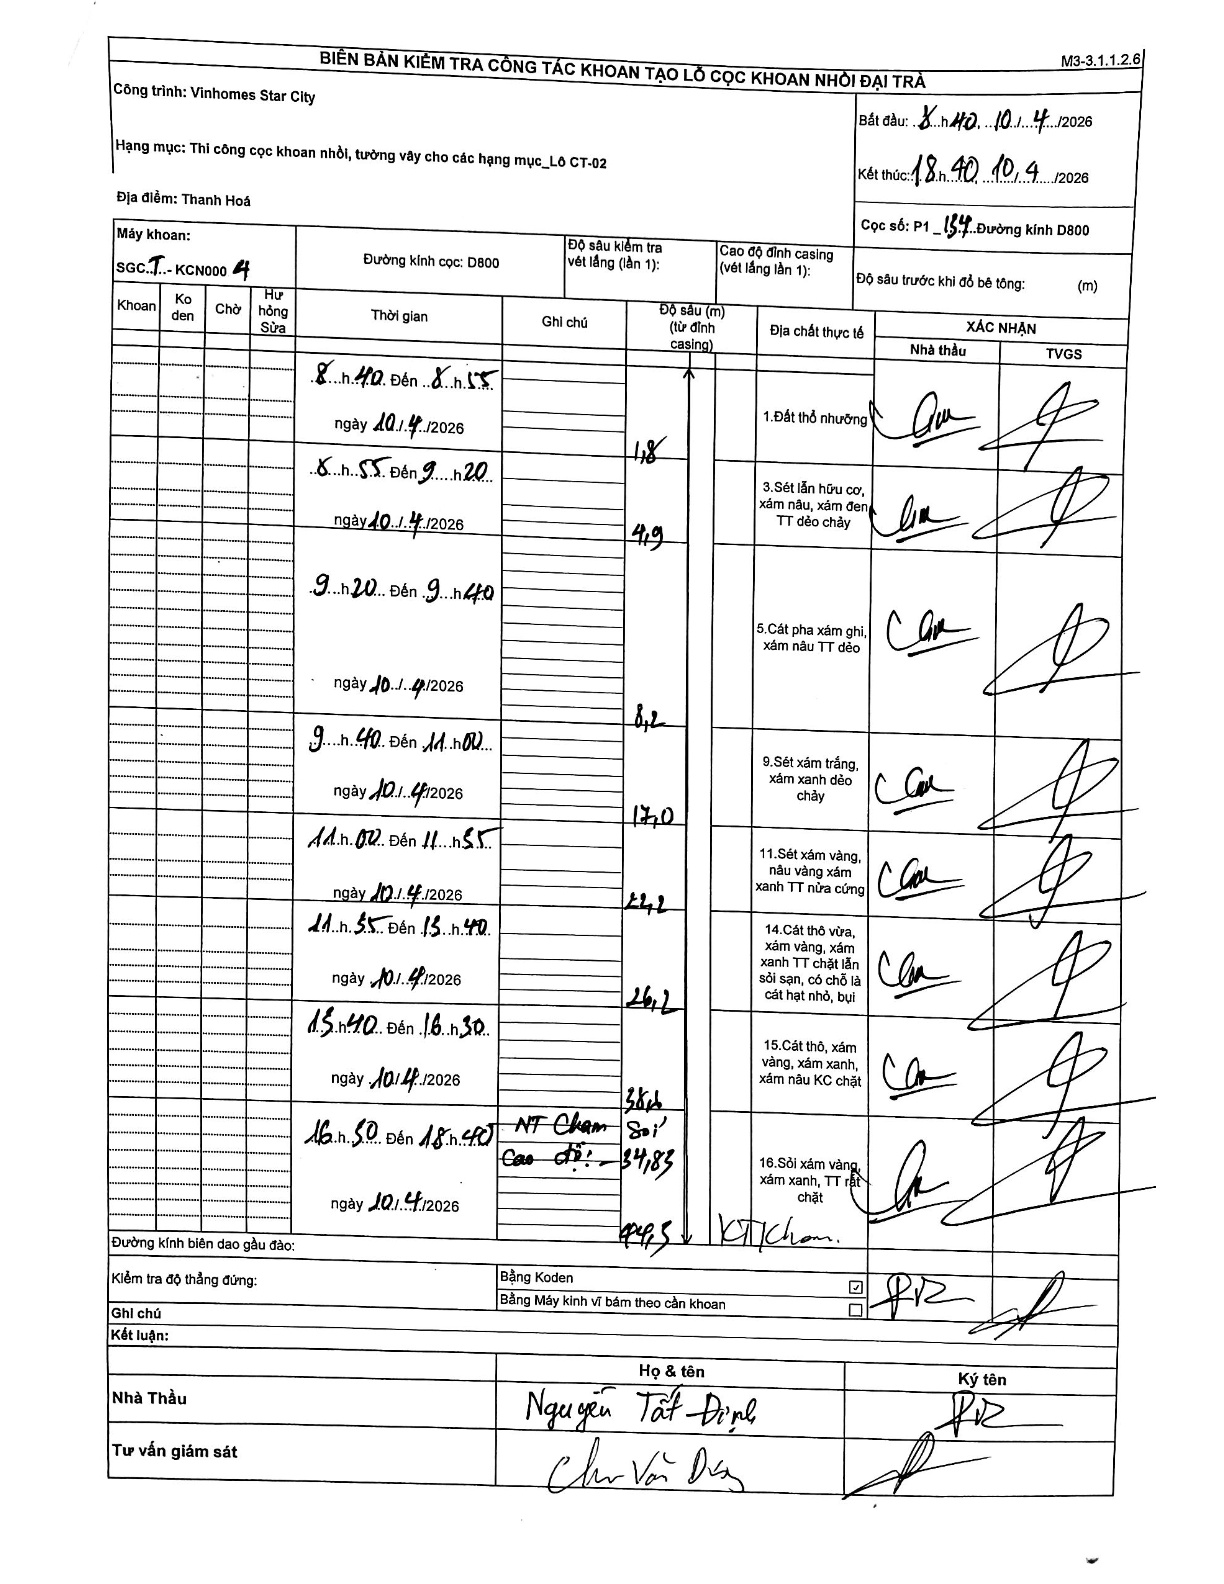 M3-3.1.1.2.6
BIÊN BẢN KIỂM TRA CÔNG TÁC KHOAN TẠO LỖ CỌC KHOAN NHỒI ĐẠI TRÀ
Công trình: Vinhomes Star City
Hạng mục: Thi công cọc khoan nhồi, tường vây cho các hạng mục_Lô CT-02
Địa điểm: Thanh Hoá
Bắt đầu: 8 h 40, 10 / 4 /2026
Kết thúc: 18 h 40, 10 / 4 /2026
Cọc số: P1_137 Đường kính D800
Máy khoan:
SGC T - KCN000 4
Đường kính cọc: D800
Độ sâu kiểm tra
vét lắng (lần 1):
Cao độ đỉnh casing
(vét lắng lần 1):
Độ sâu trước khi đổ bê tông: (m)
Khoan
Ko
den
Chờ
Hư
hỏng
Sửa
Thời gian
Ghi chú
Độ sâu (m)
(từ đỉnh
casing)
Địa chất thực tế
XÁC NHẬN
Nhà thầu
TVGS
8 h 40 Đến 8 h 55
ngày 10 / 4 /2026
1,8
1.Đất thổ nhưỡng
8 h 55 Đến 9 h 20
ngày 10 / 4 /2026
4,9
3.Sét lẫn hữu cơ,
xám nâu, xám đen
TT dẻo chảy
9 h 20 Đến 9 h 40
ngày 10 / 4 /2026
8,2
5.Cát pha xám ghi,
xám nâu TT dẻo
9 h 40 Đến 11 h 00
ngày 10 / 4 /2026
17,0
9.Sét xám trắng,
xám xanh dẻo
chảy
11 h 00 Đến 11 h 35
ngày 10 / 4 /2026
22,2
11.Sét xám vàng,
nâu vàng xám
xanh TT nửa cứng
11 h 35 Đến 13 h 40
ngày 10 / 4 /2026
26,2
14.Cát thô vừa,
xám vàng, xám
xanh TT chặt lẫn
sỏi sạn, có chỗ là
cát hạt nhỏ, bụi
13 h 40 Đến 16 h 30
ngày 10 / 4 /2026
15.Cát thô, xám
vàng, xám xanh,
xám nâu KC chặt
16 h 30 Đến 18 h 40
ngày 10 / 4 /2026
NT Chạm Sỏi
Cao độ: -34,83
44,3
16.Sỏi xám vàng,
xám xanh, TT rất
chặt
KTKhoan.
Đường kính biên dao gầu đào:
Kiểm tra độ thẳng đứng:
Bằng Koden ☑
Bằng Máy kinh vĩ bám theo cần khoan ☐
Ghi chú
Kết luận:
Họ & tên
Ký tên
Nhà Thầu
Nguyễn Tất Định
Tư vấn giám sát
Chu Văn